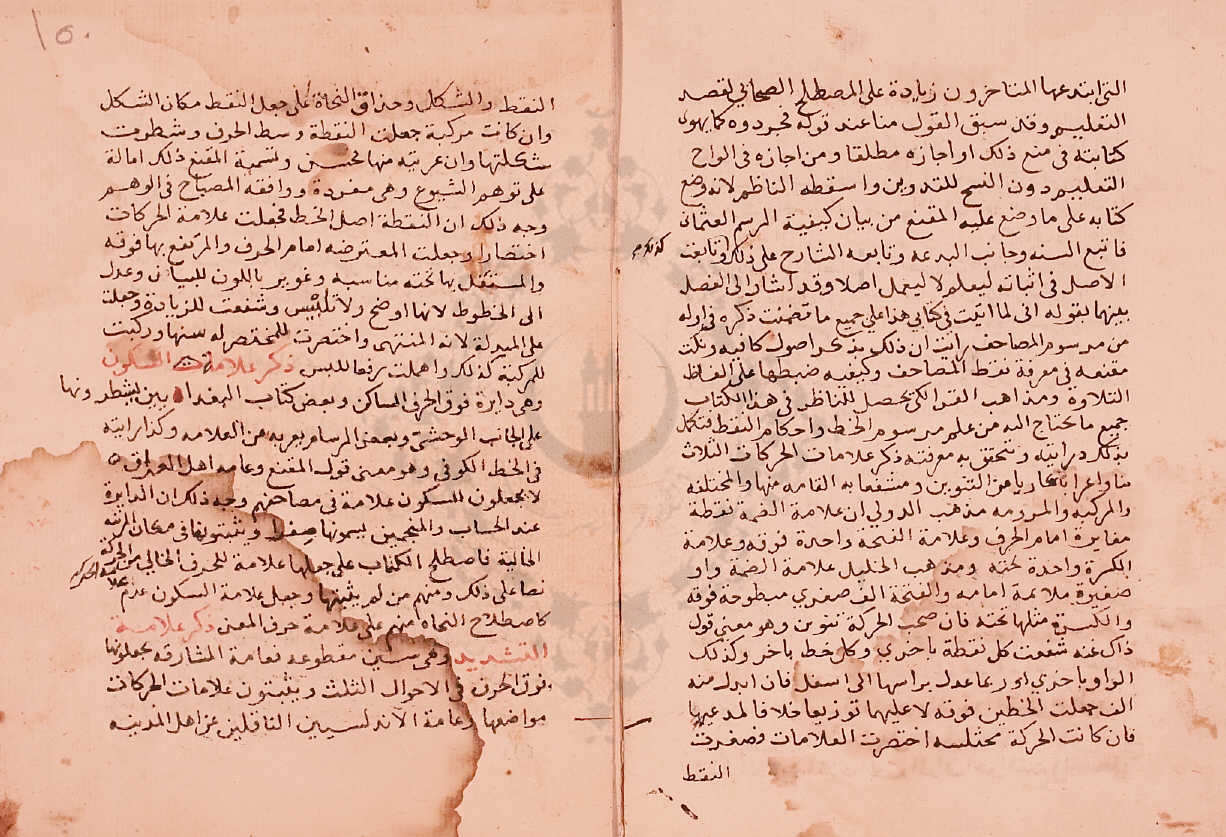 التي ابتدعها المتاخرون زيادة على المصطلح الصحابي لقصد
التعليم وقد سبق القول منا عند قوله فجردوه كما يهوى
كتابته في منع ذلك او اجازه مطلقا ومن اجازه في الواح
التعليم دون النسخ للتدوين واسقطه الناظم لانه وضع
كتابه على ما وضع عليه المقنع من بيان كيفية الرسم العثماني
فاتبع السنه وجانب البدعه وتابعه الشارح على ذلك وتابعت
الاصل في اثباته ليعلم لا ليعمل اصلا وقد اشار الى الفصل
بينهما بقوله اني لما اتيت في كتابي هذا على جميع ما تضمنت ذكره في اوله
من مرسوم المصاحف رايت ان ذلك بذكر اصول كافيه ونكت
مقنعه في معرفة نقط المصاحف وكيفيه ضبطها على الفاظ
التلاوة ومذاهب القراء لكي يحصل للناظر في هذا الكتاب
جميع ما يحتاج اليه من علم مرسوم الخط واحكام النقط فتكمل
بذلك درايته وتتحقق به معرفته ذكر علامات الحركات الثلاث
بناء واعرابا عاريا من التنوين ومشفعا به القامه منها والمختلفه
والمركبه والمرومه مذهب الدولي ان علامة الضمة نقطة
مغايرة امام الحرف وعلامة الفتحه واحدة فوقه وعلامة
الكسرة واحدة تحته ومذهب الخليل علامة الضمة واو
صغيرة ملائمة امامه والفتحة الف صغرى مبطوحة فوقه
والكسرة مثلها تحته فان صحب الحركة تنوين وهو معنى قول
ذاك غنه شفعت كل نقطة باخرى وكل خط باخر وكذلك
الواو باخرى او ربما عدل براسها الى اسفل فان ابدل منه
الف جعلت الخطين فوقه لا عليهما توزيعا خلافا لمدعيها
فان كانت الحركة مختلسه اختصرت العلامات وصغرت
النقط
النقط والشكل وحذاق النحاة على جعل النقط مكان الشكل
وان كانت مركبة جعلت النقطة وسط الحرف وشطرت
شكلتها وان عريته منها فحسن وتسمية المقنع ذلك امالة
على توهم الشيوع وهي مفردة ووافقه المصباح في الوهم
وجه ذلك ان النقطة اصل الخط فجعلت علامة الحركات
اختصارا وجعلت المعترضه امام الحرف والمرتفع بها فوقه
والمستفل بها تحته مناسبه وغوير باللون للبيان وعدل
الى الخطوط لانها اوضح ولا تلتبس وشفعت للزيادة وجعلت
على المبدلة لانه المنتهى واختصرت للمختصر له سنها وركبت
للمركبة كذلك واهملت رفعا للبس ذكر علامة السكون
وهي دايرة فوق الحرف الساكن وبعض كتاب البغداد بين يشطرونها
على الجانب الوحشي وبعض الرسام يعريه من العلامه وكذا رايته
في الخط الكوفي وهو معنى قول المقنع وعامه اهل العراق
لا يجعلون للسكون علامة في مصاحفهم وجه ذلك ان الدايرة
عند الحساب والمنجمين يسمونها صفرا ويثبتونها في مكان المرتبه
الخالية فاصطلح الكتاب على جعلها علامة للحرف الخالي من الحركة
نصا على ذلك ومنهم من لم يثبتها وجعل علامة السكون عدم علامة الحركه
كاصطلاح النحاه منهم على علامة حرف المعنى ذكر علامة
التشديد وهي سين مقطوعه فعامة المشارقه يجعلونها
فوق الحرف في الاحوال الثلث ويثبتون علامات الحركات
مواضعها وعامة الاندلسيين الناقلين عن اهل المدينه